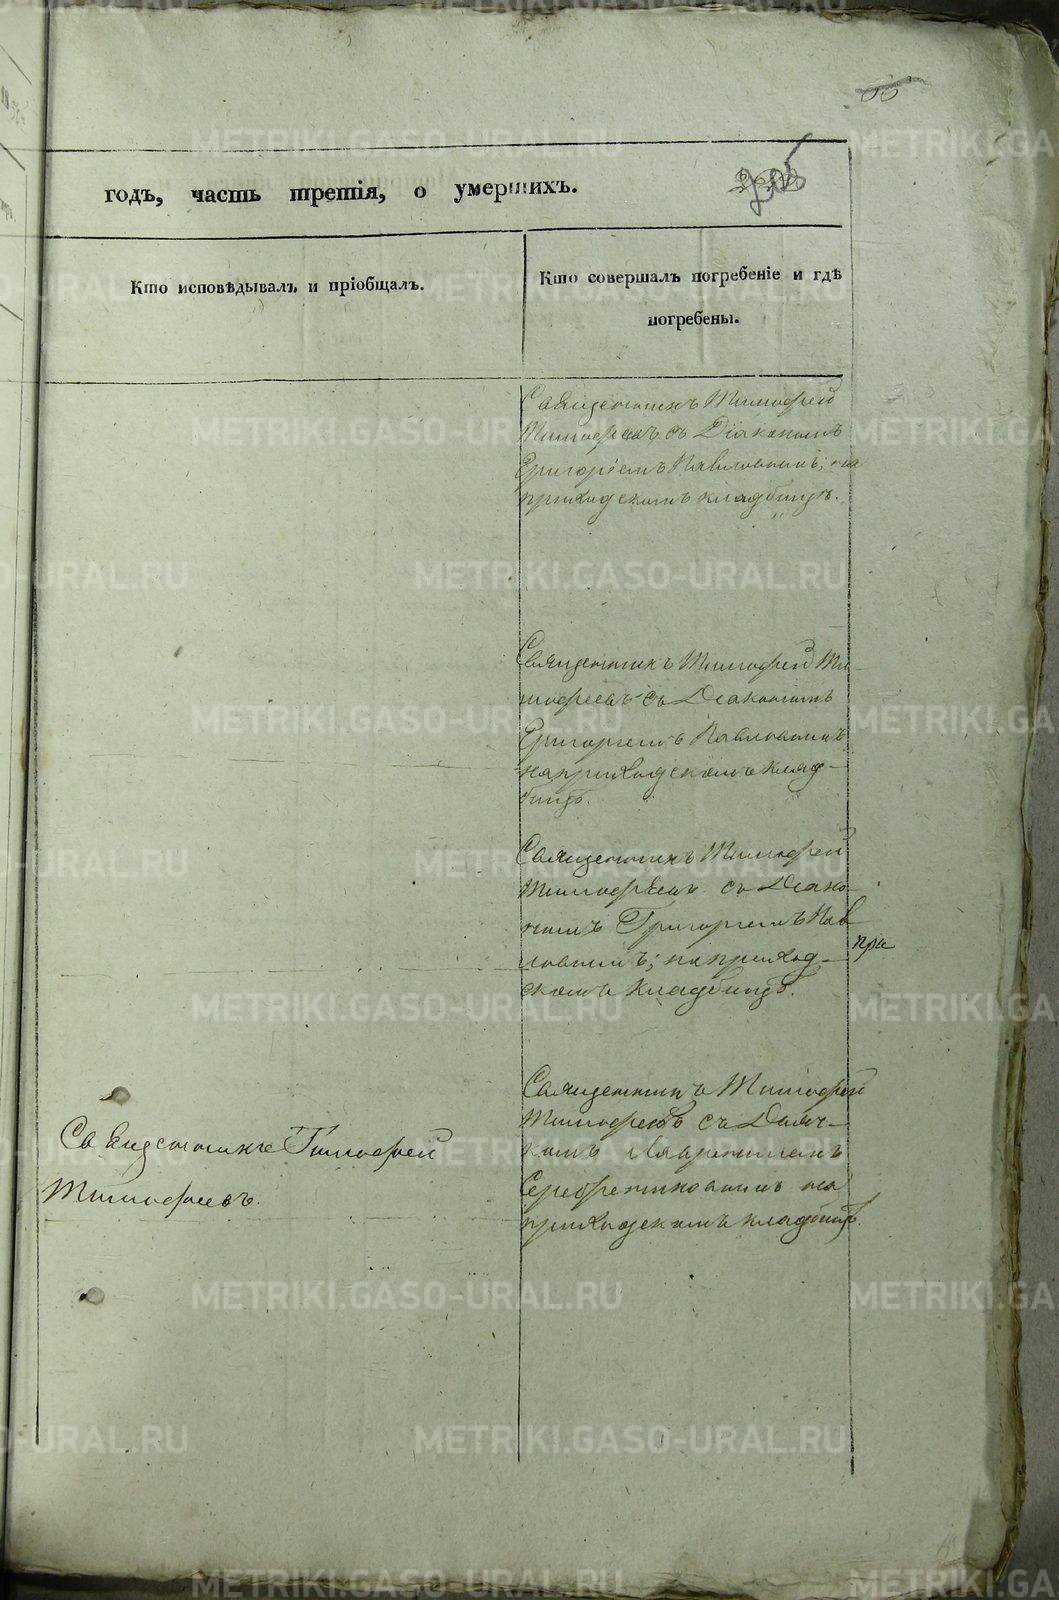 годъ, часть третія, о умершихъ.
205
Кто исповѣдывалъ и пріобщалъ.
Кто совершалъ погребеніе и гдѣ
погребены.
Священникъ Тимофей
Тимофеевъ съ Діакономъ
Григоріемъ Павловымъ; на
приходскомъ кладбищѣ.
Священникъ Тимофей Ти-
мофеевъ съ Діакономъ
Григоріемъ Павловымъ
на приходскомъ клад-
бищѣ.
Священникъ Тимофей
Тимофеевъ съ Діако-
номъ Григоріемъ Пав
ловымъ; на приход-
скомъ кладбищѣ.
при
Священникъ Тимофей
Тимофеевъ
Священникъ Тимофей
Тимофеевъ. съ Дьяч-
комъ
Серебренниковымъ на
приходскомъ кладбищѣ.
METRIKI.GASO-URAL.RU